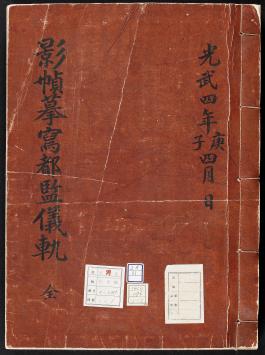 光武四年庚子四月 日
影幀摹寫都監儀軌 全